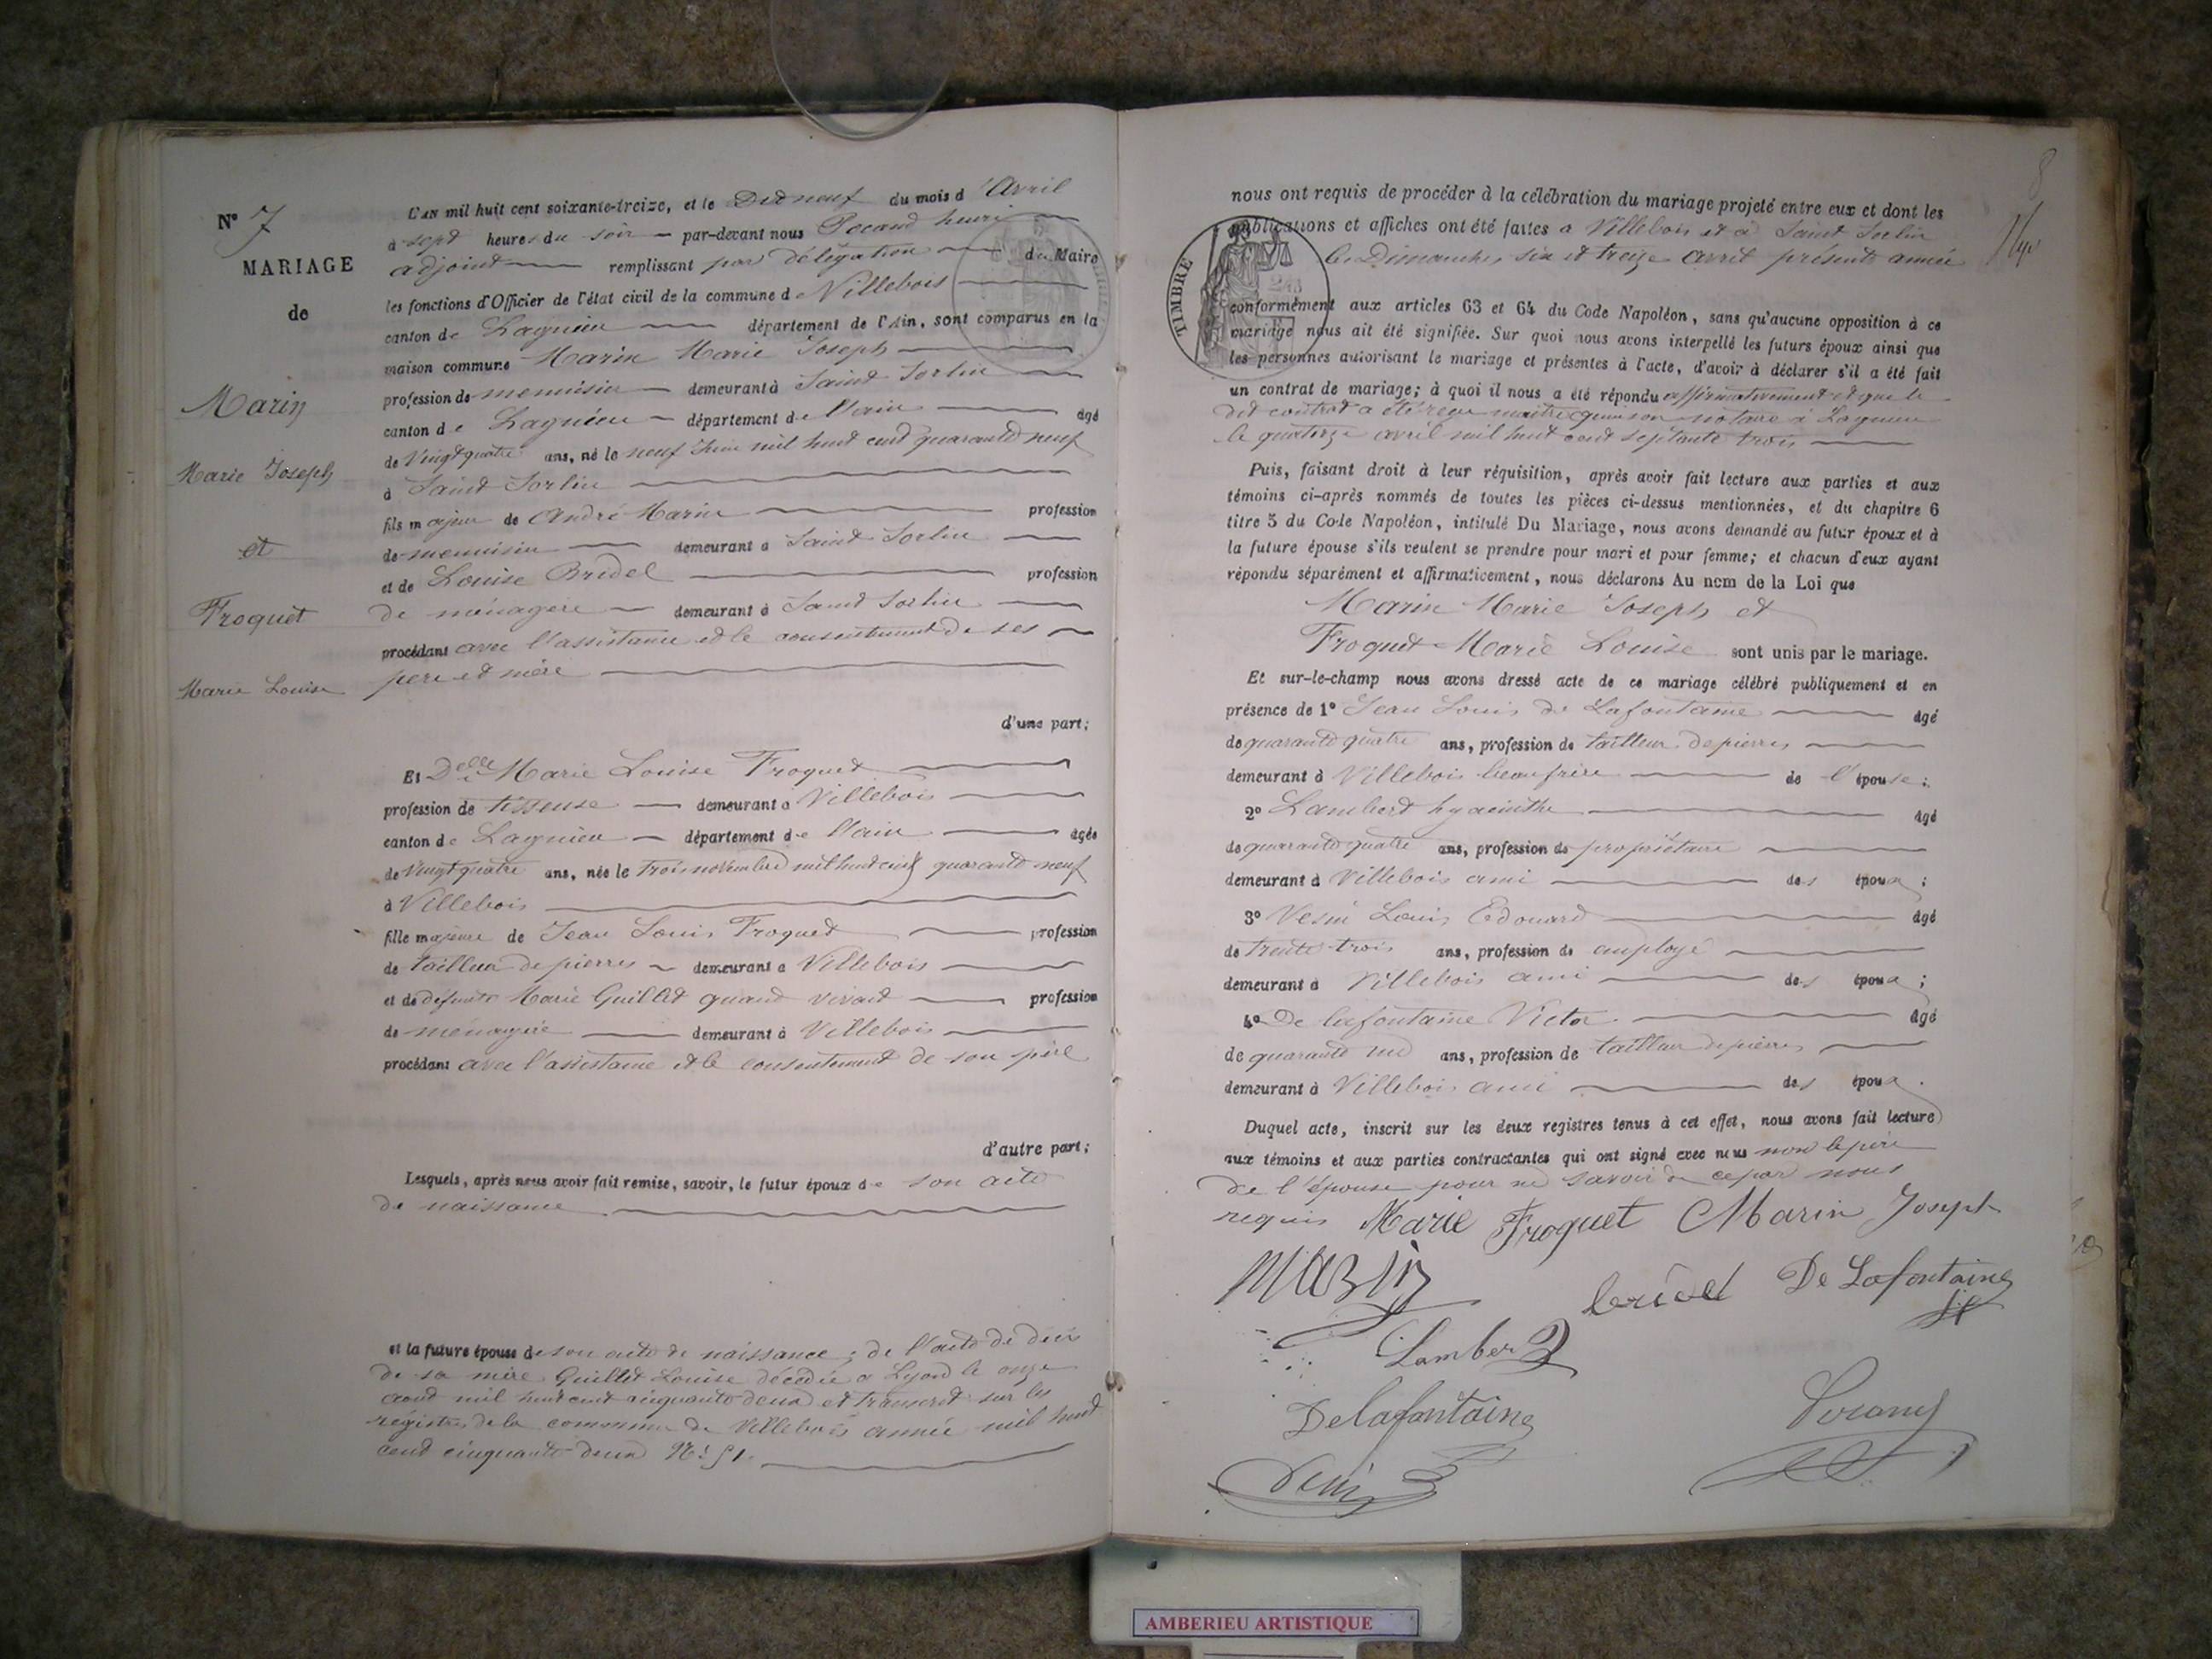 N° 7
MARIAGE
de
Marin
Marie Joseph
et
Froquet
Marie Louise
L'AN mil huit cent soixante-treize, et le Dix neuf du mois d'Avril
à sept heures du soir par-devant nous Pocand henri
adjoint remplissant par délégation du Maire
les fonctions d'Officier de l'état civil de la commune de Villebois
canton de Lagnieu département de l'Ain, sont comparus en la
maison commune Marin Marie Joseph
profession de menuisier demeurant à Saint Sorlin
canton de Lagnieu département de l'ain âgé
de Vingt quatre ans, né le neuf Juin mil huit cent quarante neuf
à Saint Sorlin
fils majeur de André Marin profession
de menuisier demeurant à Saint Sorlin
et de Louise Bridel profession
de ménagère demeurant à Saint Sorlin
procédant avec l'assistance et le consentement de ses
père et mère
d'une part;
Et Delle Marie Louise Froquet
profession de tisseuse demeurant à Villebois
canton de Lagnieu département de l'ain âgée
de Vingt quatre ans, née le Trois novembre mil huit cent quarante neuf
à Villebois
fille majeure de Jean Louis Froquet profession
de tailleur de pierres demeurant à Villebois
et de défunte Marie Guillet quand vivait profession
de ménagère demeurant à Villebois
procédant avec l'assistance et le consentement de son père
d'autre part;
Lesquels, après nous avoir fait remise, savoir, le futur époux de son acte
de naissance
et la future épouse de son acte de naissance; de l'acte de décès
de sa mère Guillet Louise décédée a Lyon le onze
aout mil huit cent cinquante deux et transcrit sur les
régistres de la commune de Villebois année mil huit
cent cinquante deux N° 51.
8
nous ont requis de procéder à la célébration du mariage projeté entre eux et dont les
publications et affiches ont été faites à Villebois et à Saint Sorlin
les Dimanches six et treize avril présente année
TIMBRE
conformément aux articles 63 et 64 du Code Napoléon, sans qu'aucune opposition à ce
mariage nous ait été signifiée. Sur quoi nous avons interpellé les futurs époux ainsi que
les personnes autorisant le mariage et présentes à l'acte, d'avoir à déclarer s'il a été fait
un contrat de mariage; à quoi il nous a été répondu affirmativement et que le
dit contrat a été reçu maitre notaire à Lagnieu
le quatorze avril mil huit cent septante trois
Puis, faisant droit à leur réquisition, après avoir fait lecture aux parties et aux
témoins ci-après nommés de toutes les pièces ci-dessus mentionnées, et du chapitre 6
titre 5 du Code Napoléon, intitulé Du Mariage, nous avons demandé au futur époux et à
la future épouse s'ils veulent se prendre pour mari et pour femme; et chacun d'eux ayant
répondu séparément et affirmativement, nous déclarons Au nom de la Loi que
Marin Marie Joseph et
Froquet Marie Louise sont unis par le mariage.
Et sur-le-champ nous avons dressé acte de ce mariage célébré publiquement et en
présence de 1° Jean Louis de Lafontaine âgé
de quarante quatre ans, profession de tailleur de pierres
demeurant à Villebois beau frère de l'épouse;
2° Lambert hyacinthe âgé
de quarante quatre ans, profession de propriétaire
demeurant à Villebois ami des époux;
3° Louis Edouard âgé
de trente trois ans, profession de employé
demeurant à Villebois ami des époux;
4° De lafontaine Victor âgé
de quarante un ans, profession de tailleur de pierres
demeurant à Villebois ami des époux.
Duquel acte, inscrit sur les deux registres tenus à cet effet, nous avons fait lecture
aux témoins et aux parties contractantes qui ont signé avec nous non le père
de l'épouse pour ne savoir de ce par nous
requis Marie Froquet Marin Joseph
Marin bridel De Lafontaine
Lambert
Delafontaine
AMBERIEU ARTISTIQUE